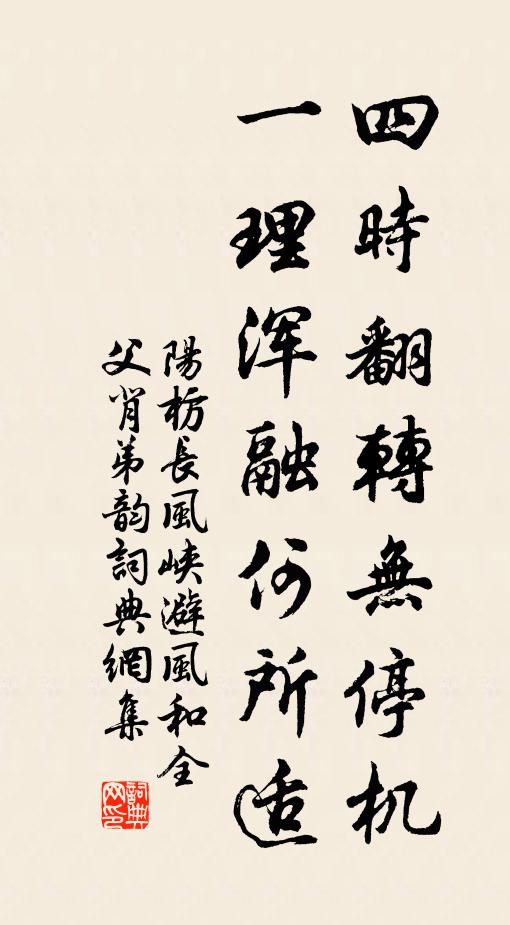 四時翻轉無停机
一理浑融何所适
陽枋長風峽避風和全
父肖弟韵詞典網集
詞典
网印